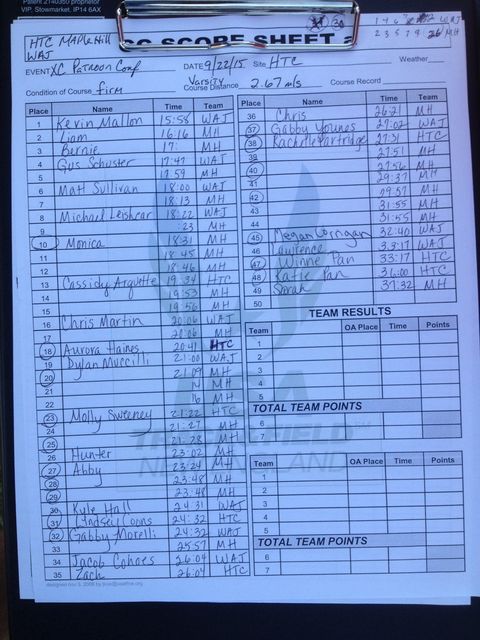 Patent 2140350 proprietor
VIP, Stowmarket, IP14 6AX
XC SCORE SHEET
HTC Maple Hill
WAJ
EVENT XC Patroon Conf DATE 9/22/15 Site HTC Weather
Varsity
Condition of Course firm Course Distance 2.67 mls Course Record
Place Name Time Team
1 Kevin Mallon 15:58 WAJ
2 Liam 16:16 MH
3 Bernie 17: MH
4 Gus Schuster 17:47 WAJ
5 17:59 MH
6 Matt Sullivan 18:00 WAJ
7 18:13 MH
8 Michael 18:22 WAJ
9 :23 MH
10 Monica 18:31 MH
11 18:45 MH
12 18:46 MH
13 Cassidy Arquette 19:34 HTC
14 19:53 MH
15 19:56 MH
16 Chris Martin 20:06 WAJ
17 20:06 MH
18 Aurora Haines 20:41 HTC
19 Dylan Muccilli 21:00 WAJ
20 21:09 MH
21 14 MH
22 16 MH
23 Molly Sweeney 21:22 HTC
24 21:27 MH
25 21:28 MH
26 Hunter 23:02 MH
27 Abby 23:24 MH
28 23:48 MH
29 23:48 MH
30 Kyle Hall 24:31 WAJ
31 Lyndsei Coons 24:32 HTC
32 Gabby Morelli 24:32 WAJ
33 25:57 MH
34 Jacob Cohoes 26:04 WAJ
35 Zach 26:04 HTC
Place Name Time Team
36 Chris 26:21 MH
37 Gabby Younes 27:02 WAJ
38 Rachel Partridge 27:31 HTC
39 27:51 MH
40 27:56 MH
41 29:37 MH
42 29:57 MH
43 31:55 MH
44 31:55 MH
45 Megan Corrigan 32:40 WAJ
46 Lawrence 33:17 WAJ
47 Winne Pan 33:17 HTC
48 Katie Pan 36:00 HTC
49 Sarah 37:32 MH
50
TEAM RESULTS
Team OA Place Time Points
1
2
3
4
5
TOTAL TEAM POINTS
6
7
Team OA Place Time Points
1
2
3
4
5
TOTAL TEAM POINTS
6
7
USA
TRACK & FIELD
NEW ENGLAND